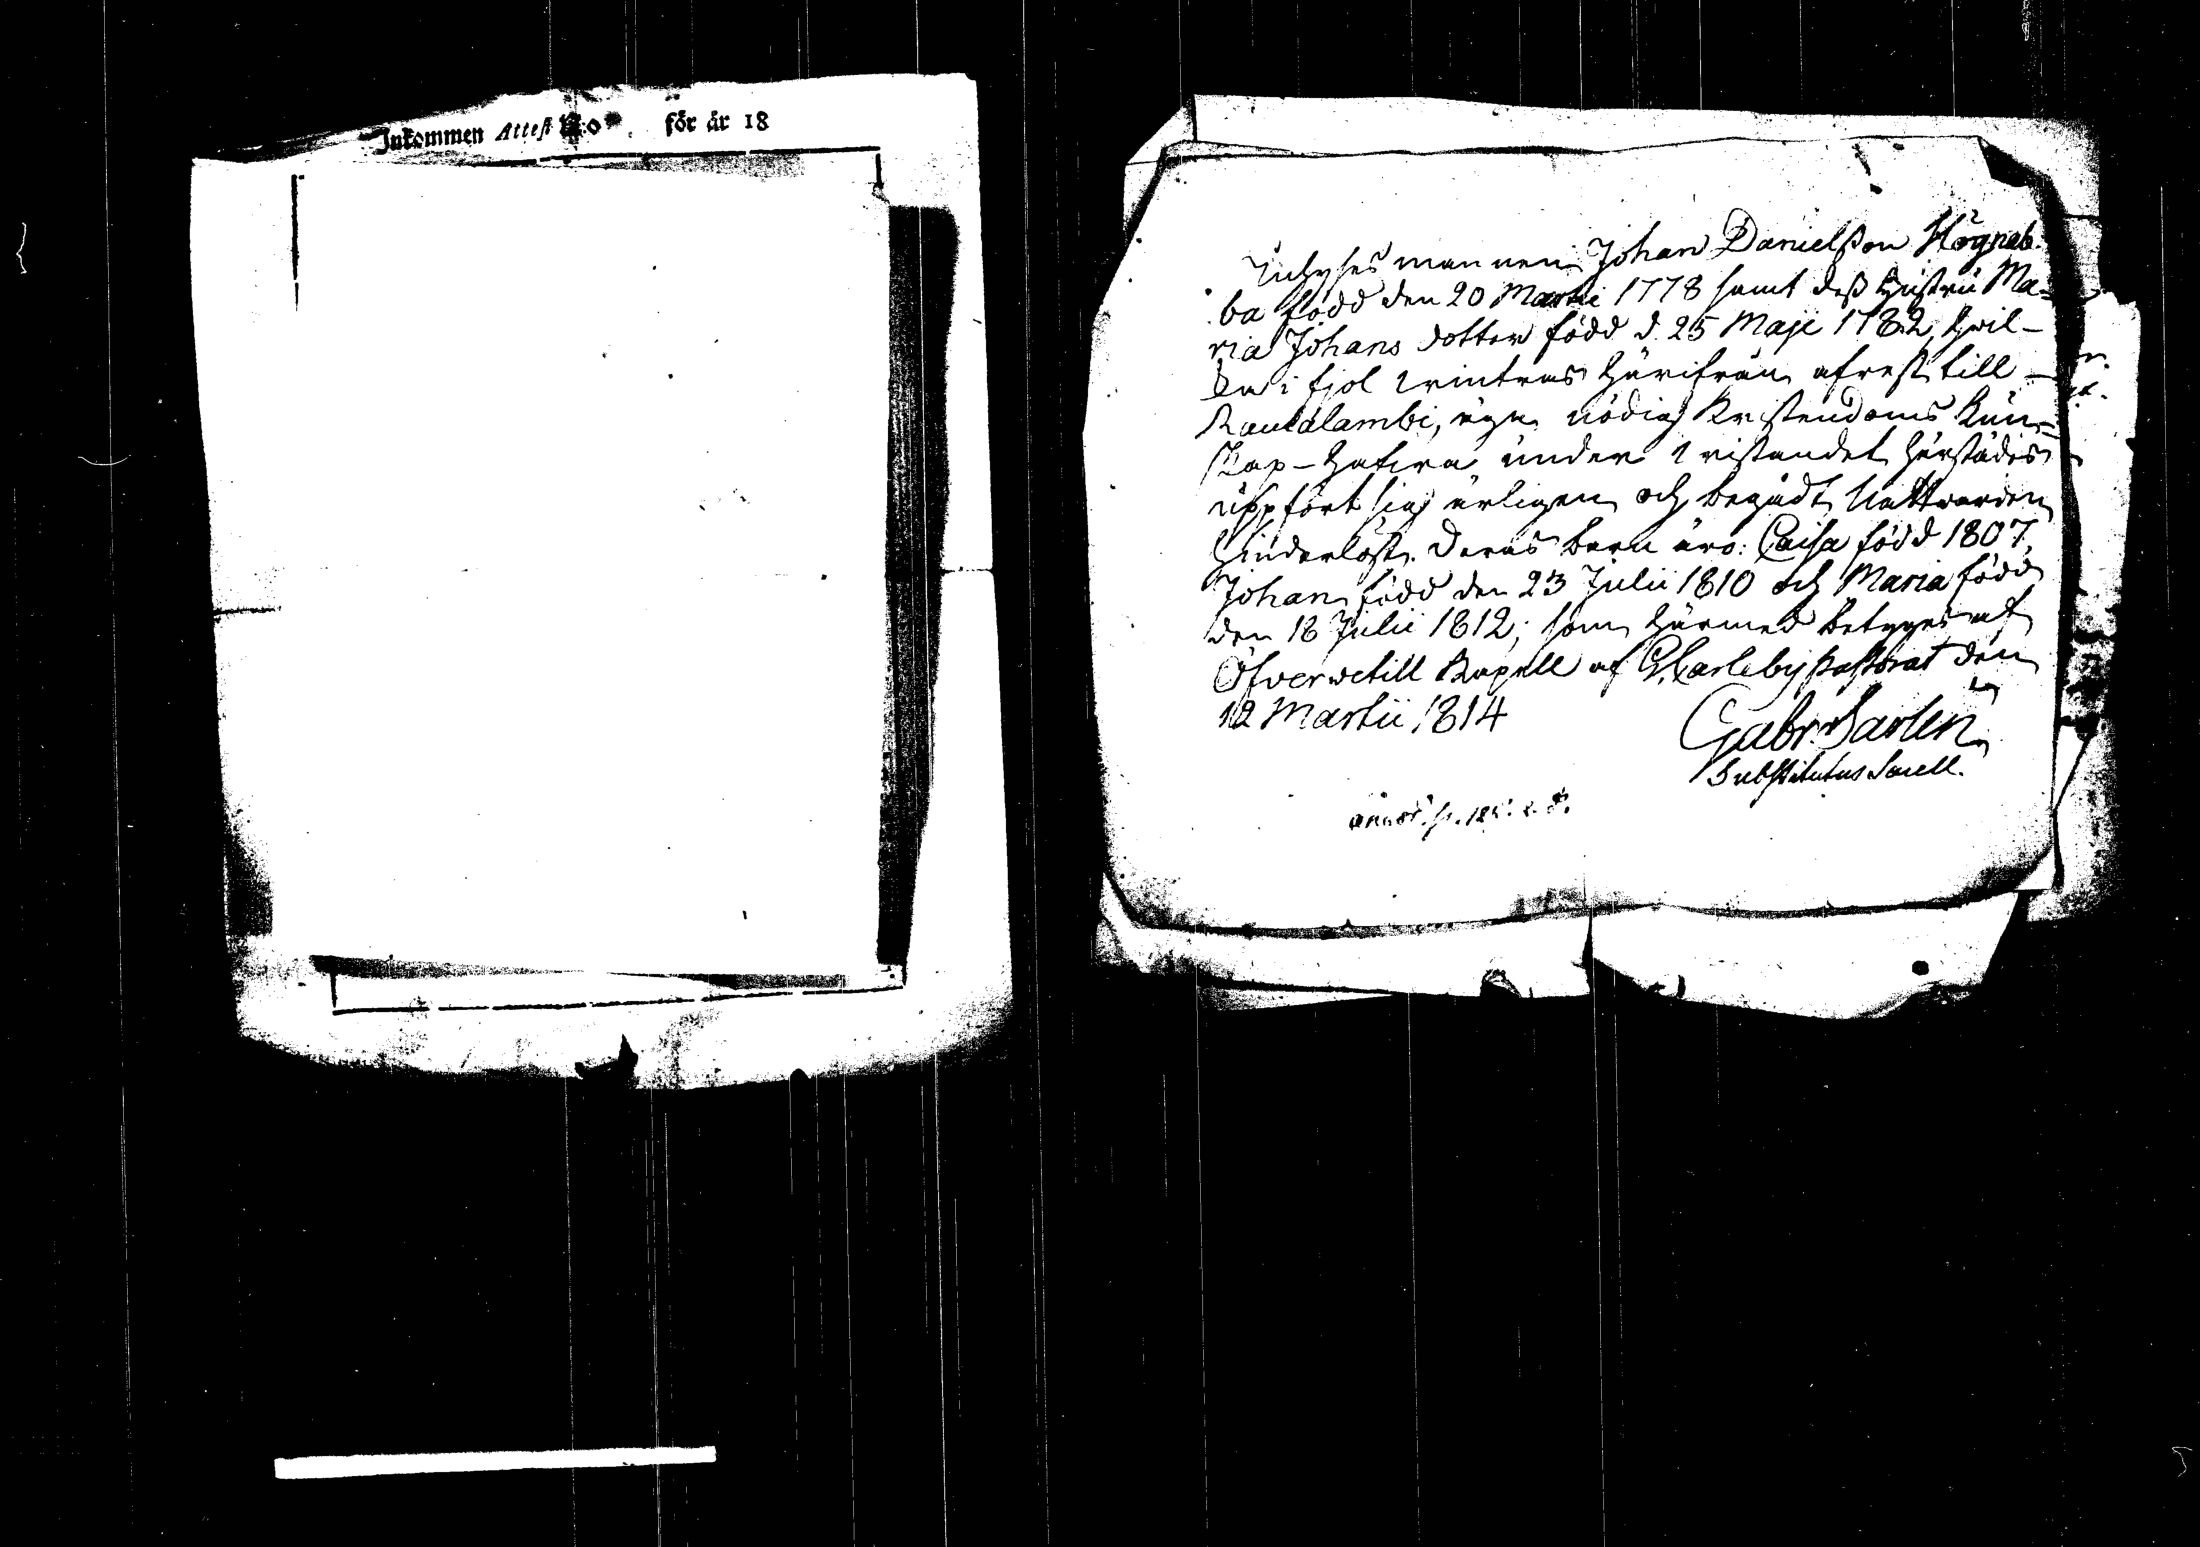 Inkommen Attest N:o . för år 18
Inhyses mannen Johan Danielsson Högnab-
ba född den 20 Martii 1778 samt dess Hustru Ma-
ria Johans dotter född d. 25 Maji 1782, hvil-
ka i fjol vintras härifrån afrest till
Rautalambi, äga nödig Kristendoms Kun-
skap - hafva under vistandet härstädes
uppfört sig ärligen och begådt Nattvarden
hinderlöst. Deras barn äro: Caisa född 1807,
Johan född den 23 Julii 1810 och Maria född
den 18 Julii 1812; som härmed betygas af
Öfvervetill Kapell af G. Carleby Pastorat den
12 Martii 1814
Gabr.
Substitutus Sacell.